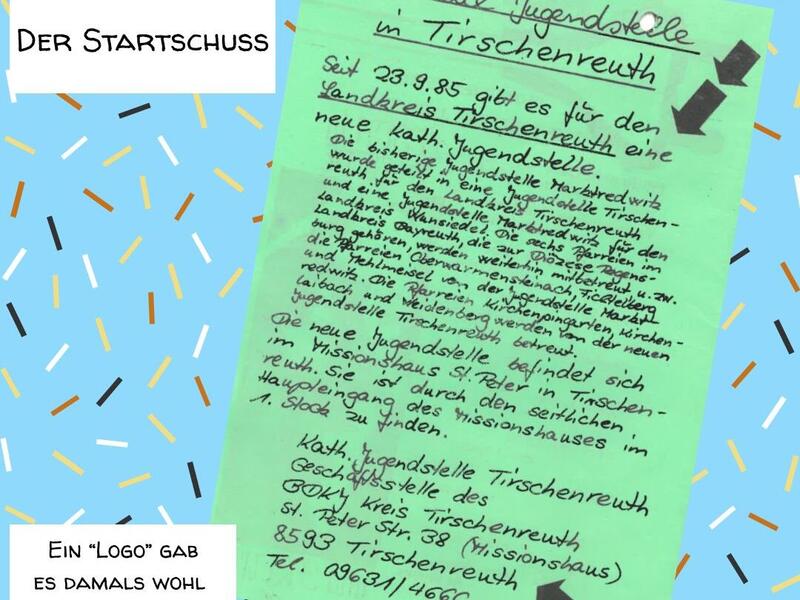 DER STARTSCHUSS
Jugendstelle
in Tirschenreuth
Seit 23.9.85 gibt es für den
Landkreis Tirschenreuth eine
neue kath. Jugendstelle.
Die bisherige Jugendstelle Marktredwitz
wurde geteilt in eine Jugendstelle Tirschen-
reuth für den Landkreis Tirschenreuth
und eine Jugendstelle Marktredwitz für den
Landkreis Wunsiedel. Die sechs Pfarreien im
Landkreis Bayreuth, die zur Diözese Regens-
burg gehören, werden weiterhin mitbetreut u. zw.
die Pfarreien Oberwarmensteinach, Fichtelberg
und Mehlmeisel von der Jugendstelle Markt-
redwitz. Die Pfarreien Kirchenpingarten, Kirchen-
laibach und Weidenberg werden von der neuen
Jugendstelle Tirschenreuth betreut.
Die neue Jugendstelle befindet sich
im Missionshaus St. Peter in Tirschen-
reuth. Sie ist durch den seitlichen
Haupteingang des Missionshauses im
1. Stock zu finden.
Kath. Jugendstelle Tirschenreuth
Geschäftsstelle des
BDKJ Kreis Tirschenreuth
St. Peter Str. 38 (Missionshaus)
8593 Tirschenreuth
Tel. 09631/4660
EIN "LOGO" GAB
ES DAMALS WOHL